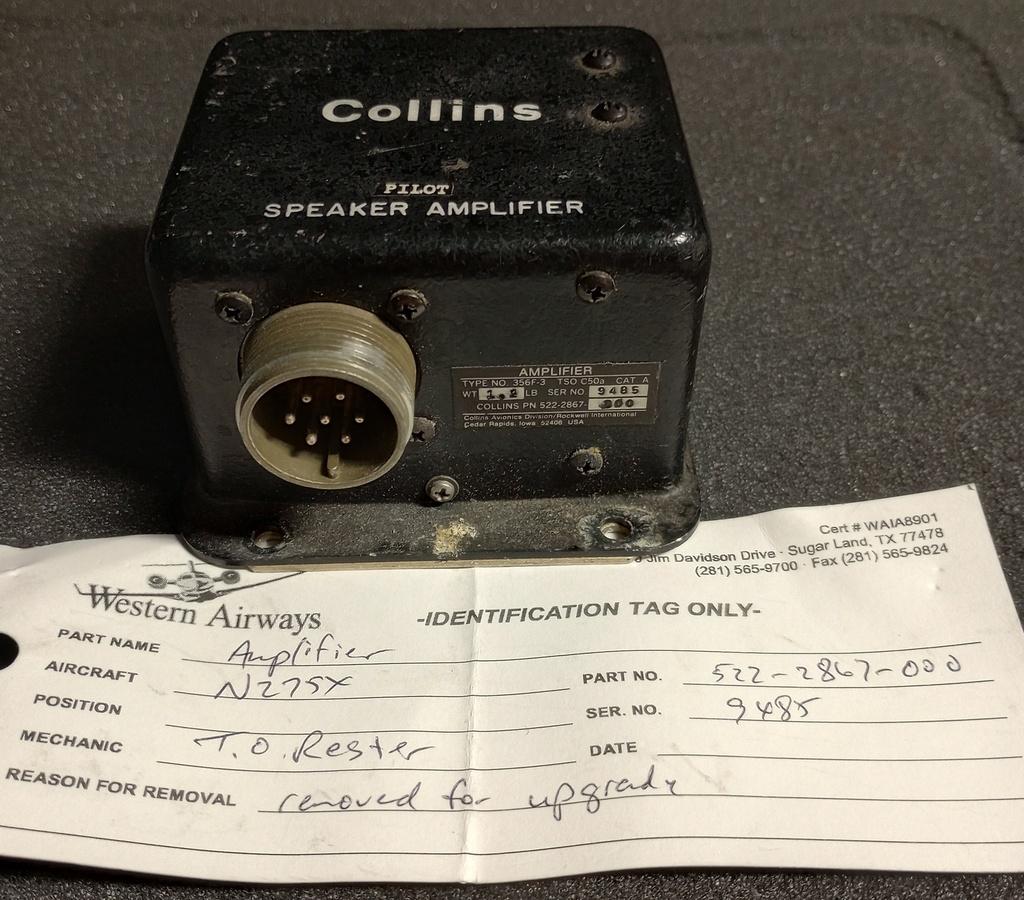 Collins
PILOT
SPEAKER AMPLIFIER
AMPLIFIER
TYPE NO. 356F-3 TSO C50a CAT A
WT 1.2 LB SER NO 9485
COLLINS PN 522-2867-000
Collins Avionics Division/Rockwell International
Cedar Rapids, Iowa 52406 USA
Cert # WAIA8901
Jim Davidson Drive · Sugar Land, TX 77478
(281) 565-9700 · Fax (281) 565-9824
Western Airways
-IDENTIFICATION TAG ONLY-
PART NAME Amplifier
AIRCRAFT N275X
PART NO. 522-2867-000
POSITION
SER. NO. 9485
MECHANIC T.O. Rester
DATE
REASON FOR REMOVAL removed for upgrade